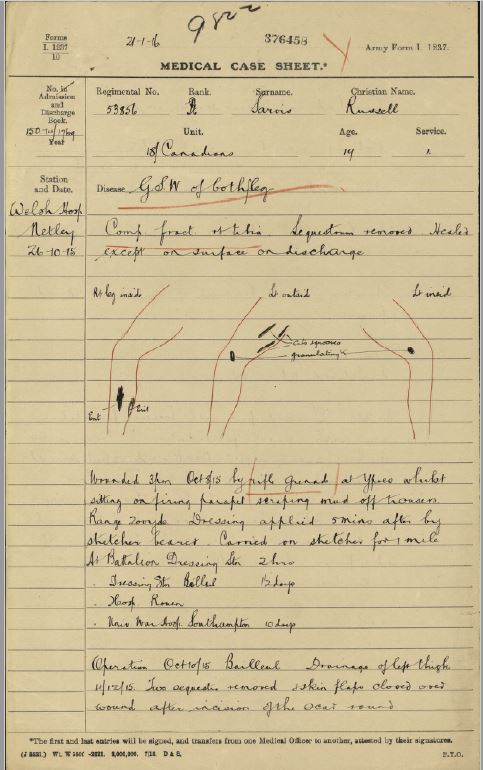 Forms
I. 1237
10
21-1-16
376458
Army Form I. 1237.
MEDICAL CASE SHEET.*
No. in
Admission
and
Discharge
Book.
Year
Regimental No.
Rank.
Surname.
Christian Name.
53856
Pt
Jarvis
Russell
Unit.
Age.
Service.
18/Canadians
19
1.
Station
and Date.
Disease
G.S.W of both leg
Welsh Hosp
Netley
26-10-15
Comp. fract. rt tibia. Sequestrum removed Healed
except on surface on discharge
Rt leg inside
Lt outside
Lt inside
granulating
Ent
Exit
Wounded 3pm Oct 8/15 by rifle Grenad at Ypres whilst
sitting on firing parapet scraping mud off trousers
Range 200yds. Dressing applied 5 mins after by
stretcher bearer. Carried on stretcher for 1 mile
At Battalion Dressing Stn 2 hrs
" Dressing Stn
" Hosp Rouen
" Univ War Hosp. Southampton 10 days
Operation Oct 10/15 Bailleul Drainage of left thigh
11/12/15. Two sequestra removed & skin flaps closed over
wound after incision of the scar round
*The first and last entries will be signed, and transfers from one Medical Officer to another, attested by their signatures.
P.T.O.